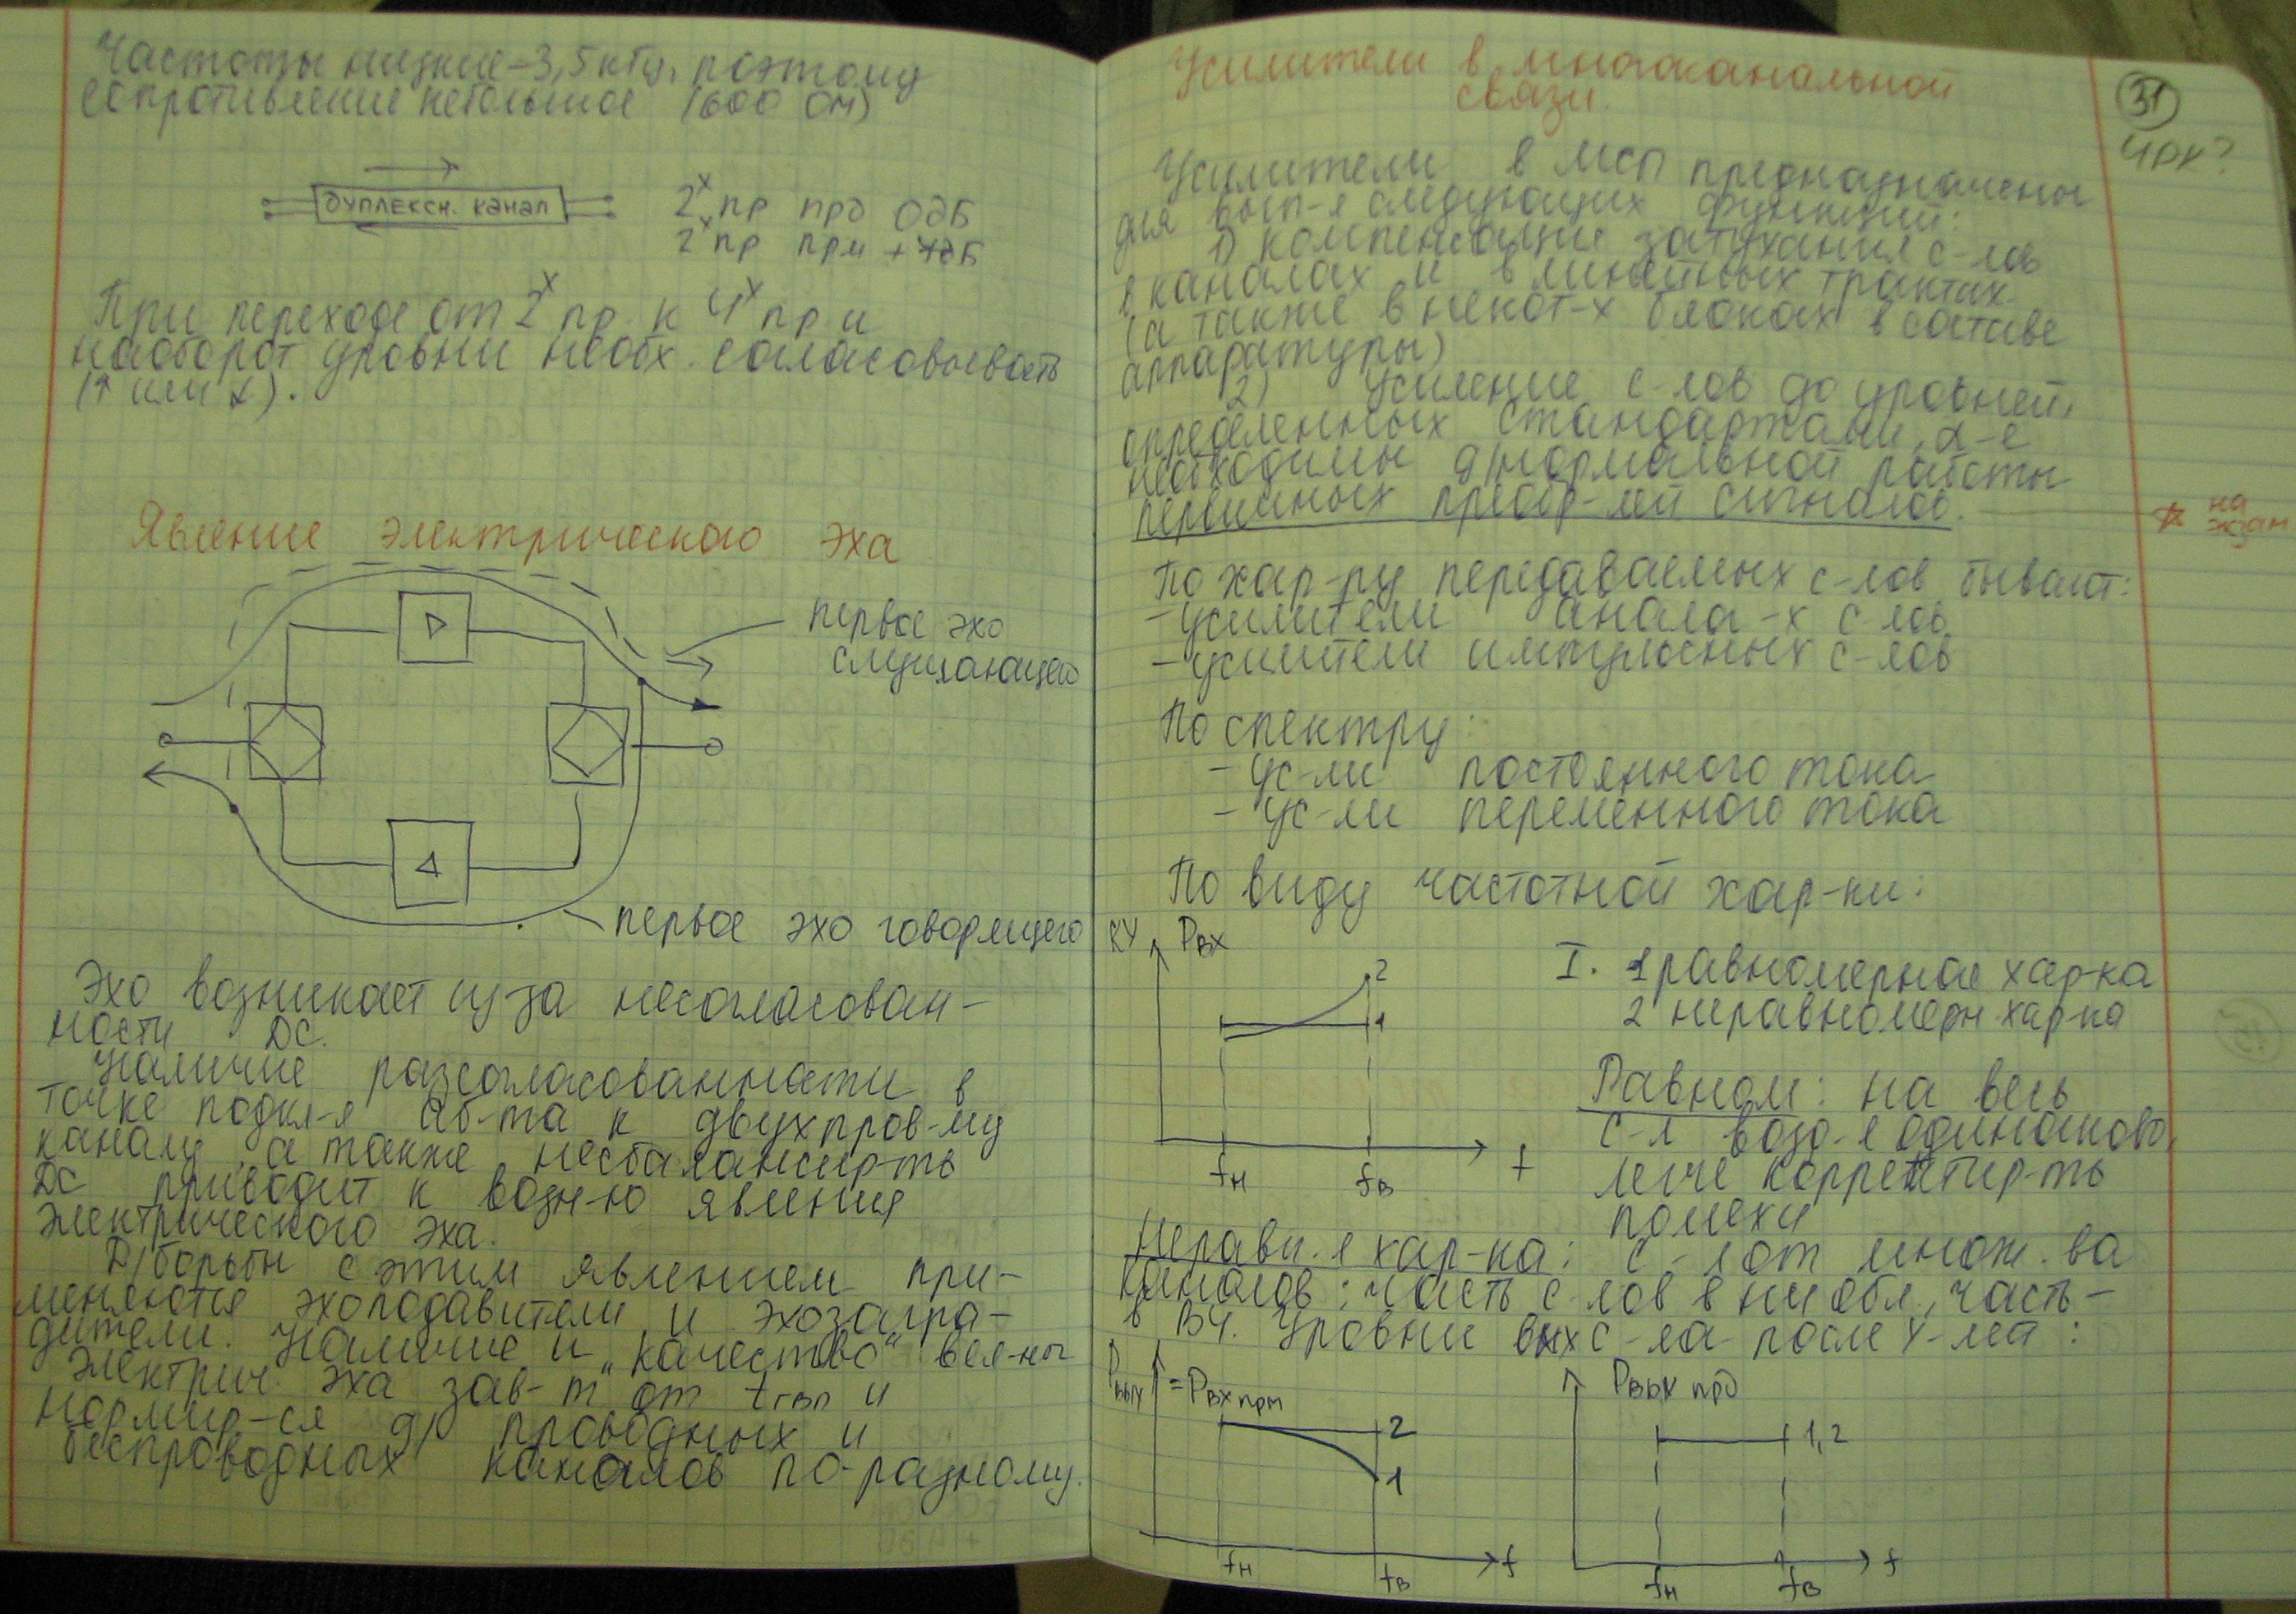 Частоты низкие – 3,5 кГц, поэтому
сопротивление небольшое (600 Ом)
дуплексн. канал
2х пр прд 0дБ
2х пр прм +7дБ
При переходе от 2х пр. к 4х пр и
наоборот уровни необх. согласовывать
(↑ или ↓).
Явление электрического эха
первое эхо
слушающего
первое эхо говорящего
Эхо возникает из-за несогласован-
ности ДС.
Наличие разсогласованности в
точке подкл-я аб-та к двухпров-му
каналу, а также несбалансир-ть
ДС приводит к возн-ю явления
электрического эха.
Д/борьбы с этим явлением при-
меняются эхоподавители и эхозагра-
дители. Наличие и "качество" вел-ны
электрич. эха зав-т от tгвп и
нормир-ся д/ проводных и
беспроводных каналов по-разному.
Усилители в многоканальной
связи.
31
ЧРК?
Усилители в МСП предназначены
для вып-я следующих функций:
1) компенсация затухания с-лов
в каналах и в линейных трактах
(а также в некот-х блоках в составе
аппаратуры)
2) Усиление с-лов до уровней,
определенных стандартами, к-е
необходимы д/нормальной работы
первичных преобр-лей сигналов.
на
экзам
По хар-ру передаваемых с-лов бывают:
- усилители аналог-х с-лов
- усилители импульсных с-лов
По спектру:
- ус-ли постоянного тока
- ус-ли переменного тока
По виду частотной хар-ки:
КУ Рвх
2
1
fн fв f
I. 1 равномерное хар-ка
2 неравномерн хар-ка
Равном: на весь
с-л возд-е одинаково,
легче корректир-ть
помехи
Неравн. я хар-ка: с-л от множ. ва
каналов: часть с-лов в нч обл, часть –
в ВЧ. Уровни вых с-ла после у-лей:
Рвых = Рвх прм
2
1
fн fв f
Рвых прд
1,2
fн fв f